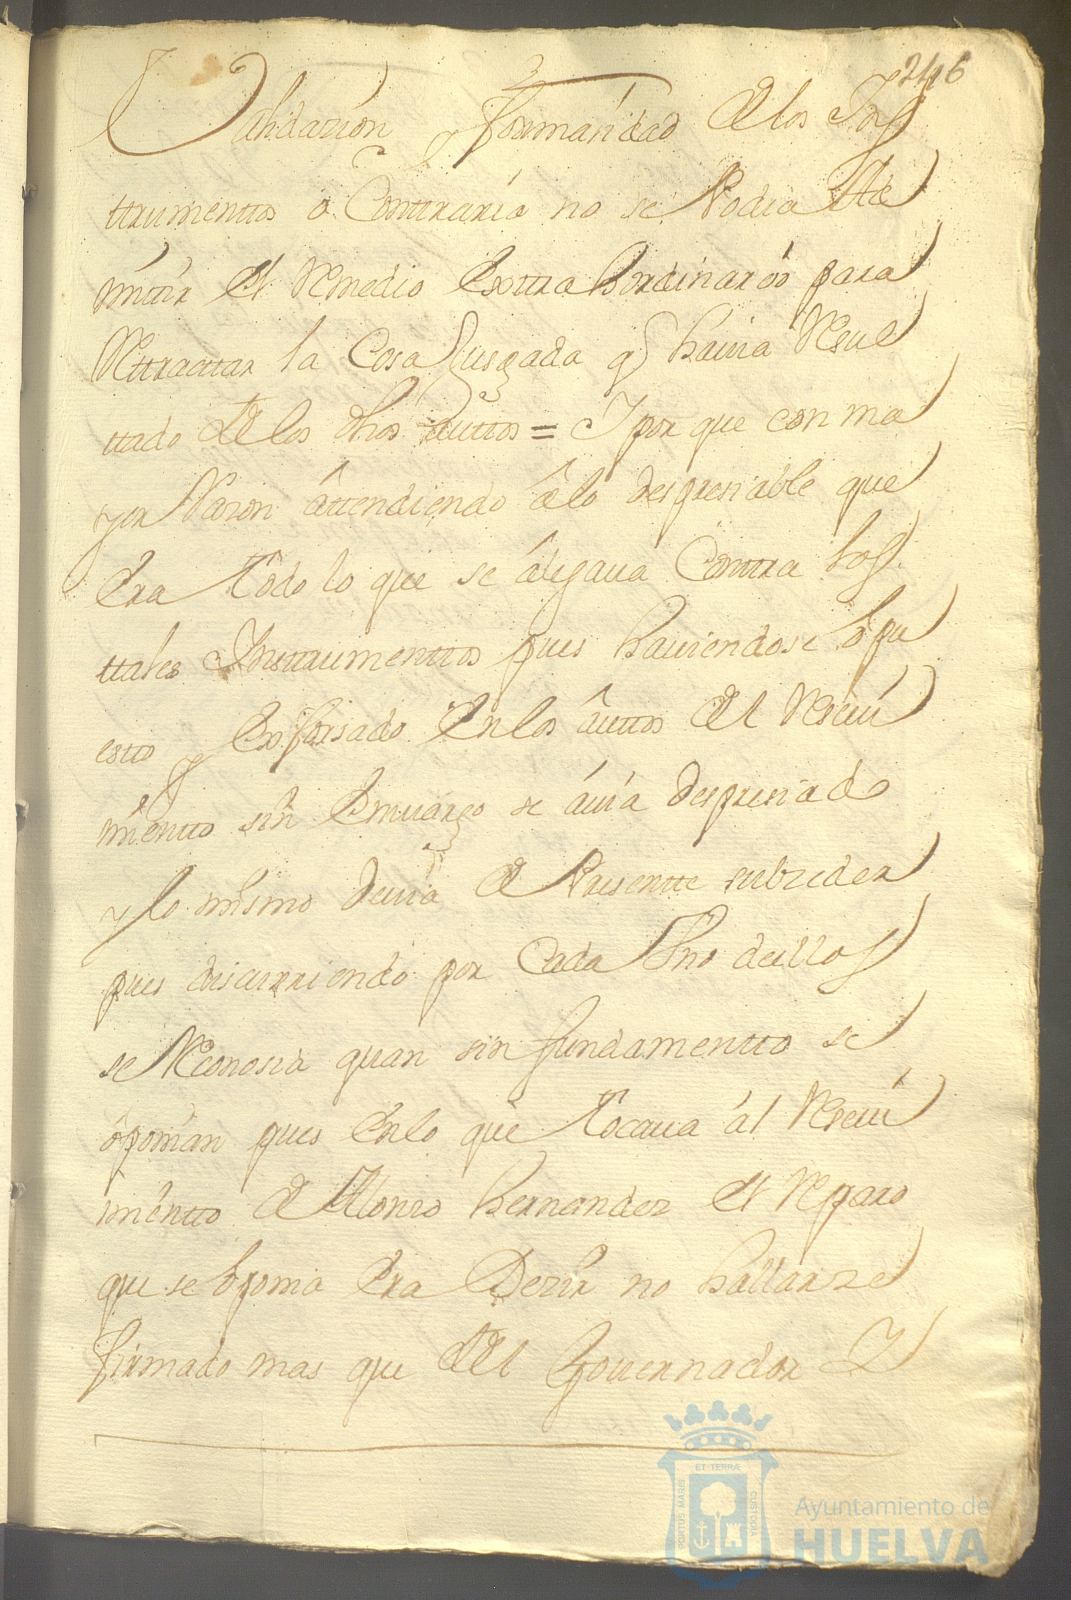 246
Validazion y formanidad de los Ins
ttrumenttos o Contrario no se Podia Ad
mitir el Remedio Exttra hordinario para
Rettracttar la Cosa Jusgada q havia Resul
ttado de los dhos auttos = I por que con ma
yor Razon attendiendo a lo despresiable que
Era ttodo lo que se alegava Conttra los
ttales Insttrumenttos pues haviendose opu
estto y Exforsado En los auttos delResiui
mientto sin Emvargo se avia despresiado
y lo mismo devia de Presentte subzeder
pues discurriendo por Cada Uno de ellos
se Reconosia quan sin fundamentto se
oponian pues En lo que ttocava al Resiui
mientto de Alonso hernandez el Reparo
que se oponia Era Dezir no hallarze
firmado mas que del Governador I
Ayuntamiento de
HUELVA
ET TERRÆ
PORTUS MARIS
CUSTODIA